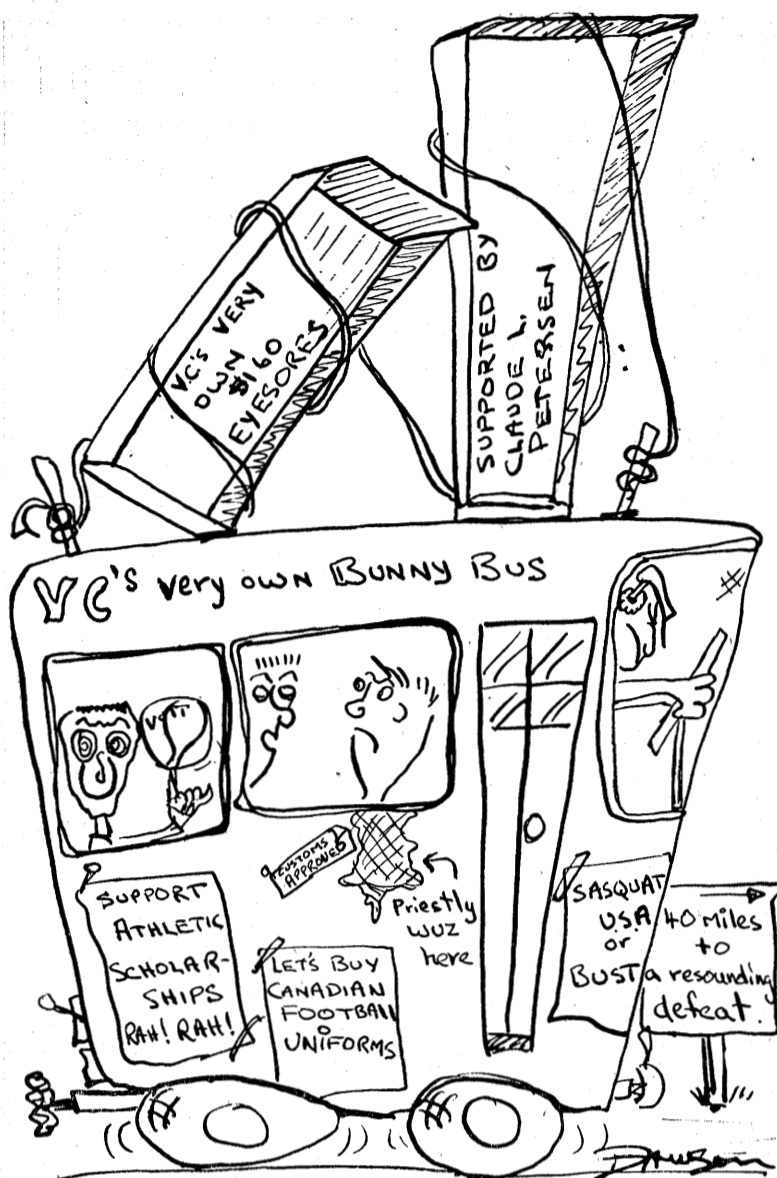 V.C.'s VERY
OWN
$160
EYESORES
SUPPORTED BY
CLAUDE L.
PETERSEN
VC's very own BUNNY BUS
CUSTOMS
APPROVED
Priestly
wuz
here
SUPPORT
ATHLETIC
SCHOLAR-
SHIPS
RAH! RAH!
LET'S BUY
CANADIAN
FOOTBALL
UNIFORMS
SASQUAT
U.S.A
or
BUST
40 Miles
to
a resounding
defeat.
Dawson